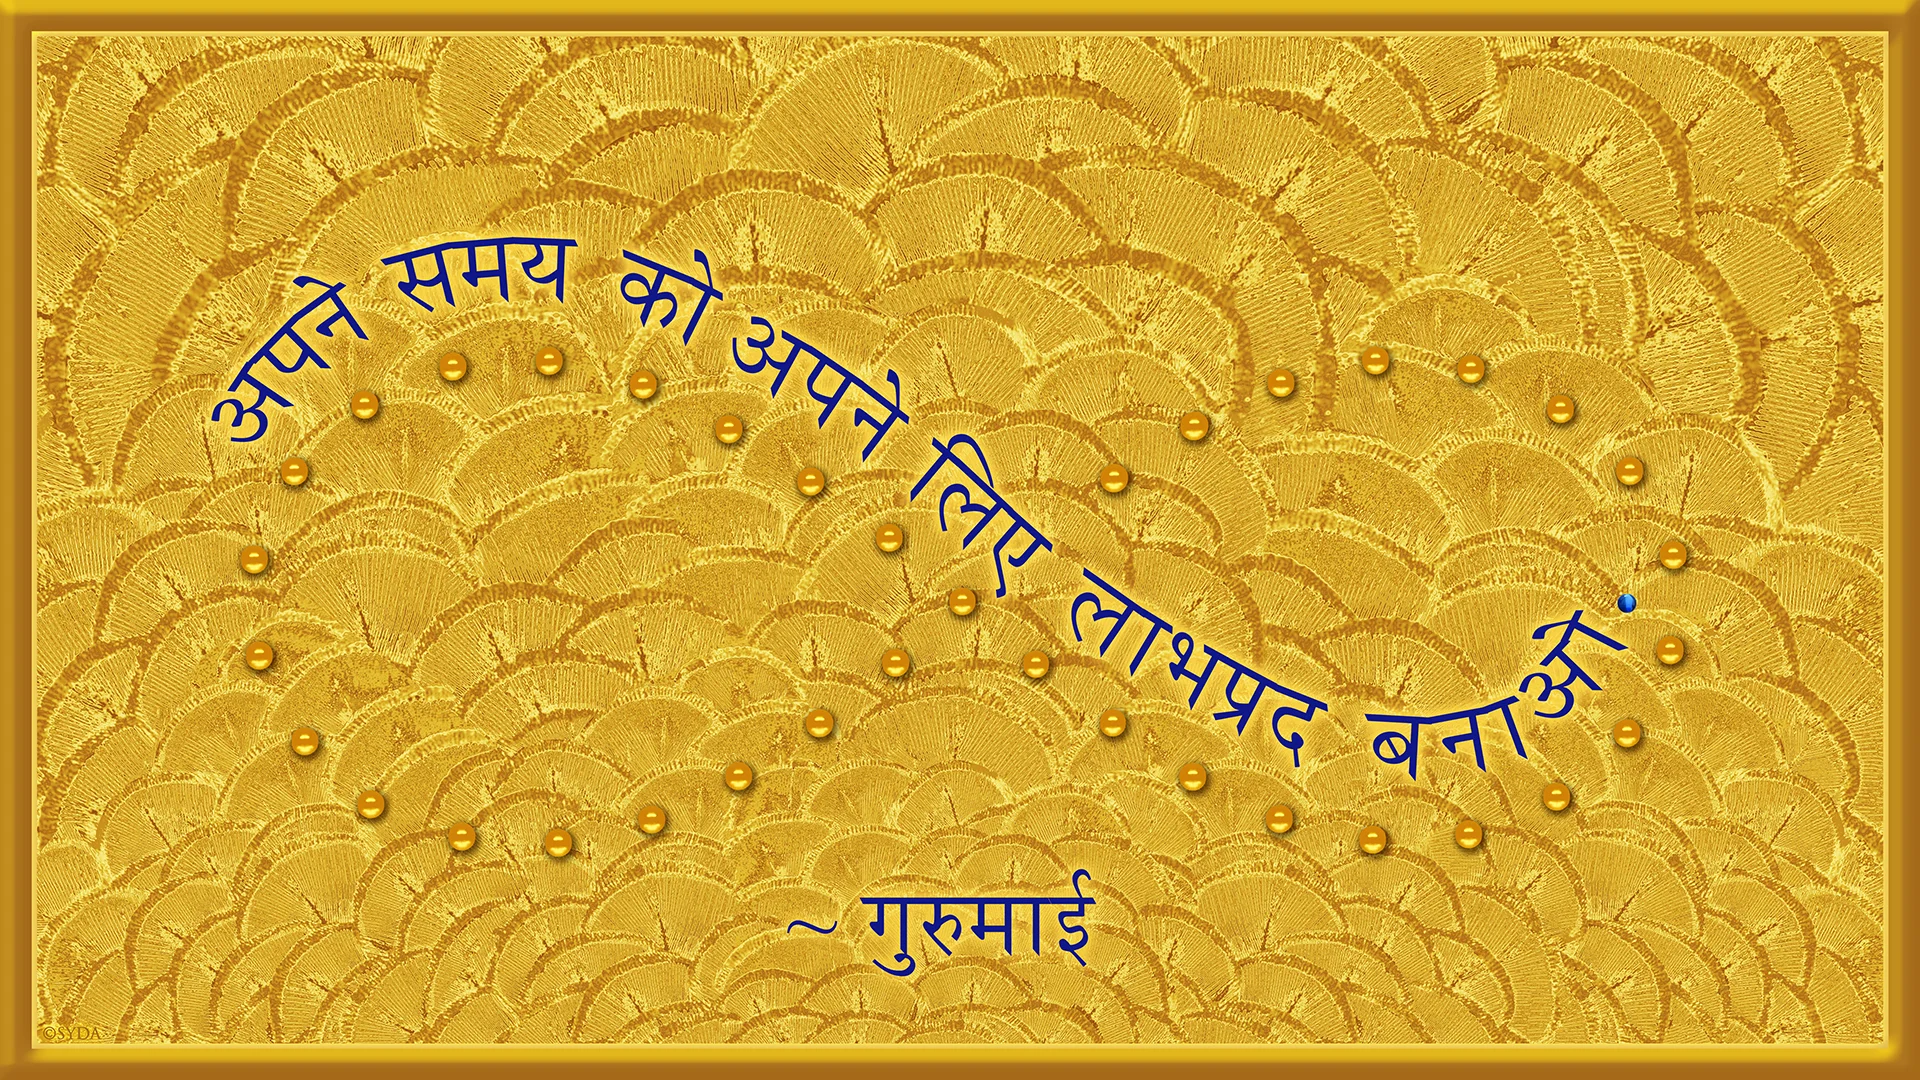 अपने समय को अपने लिए लाभप्रद बनाओ
~ गुरुमाई
©SYDA